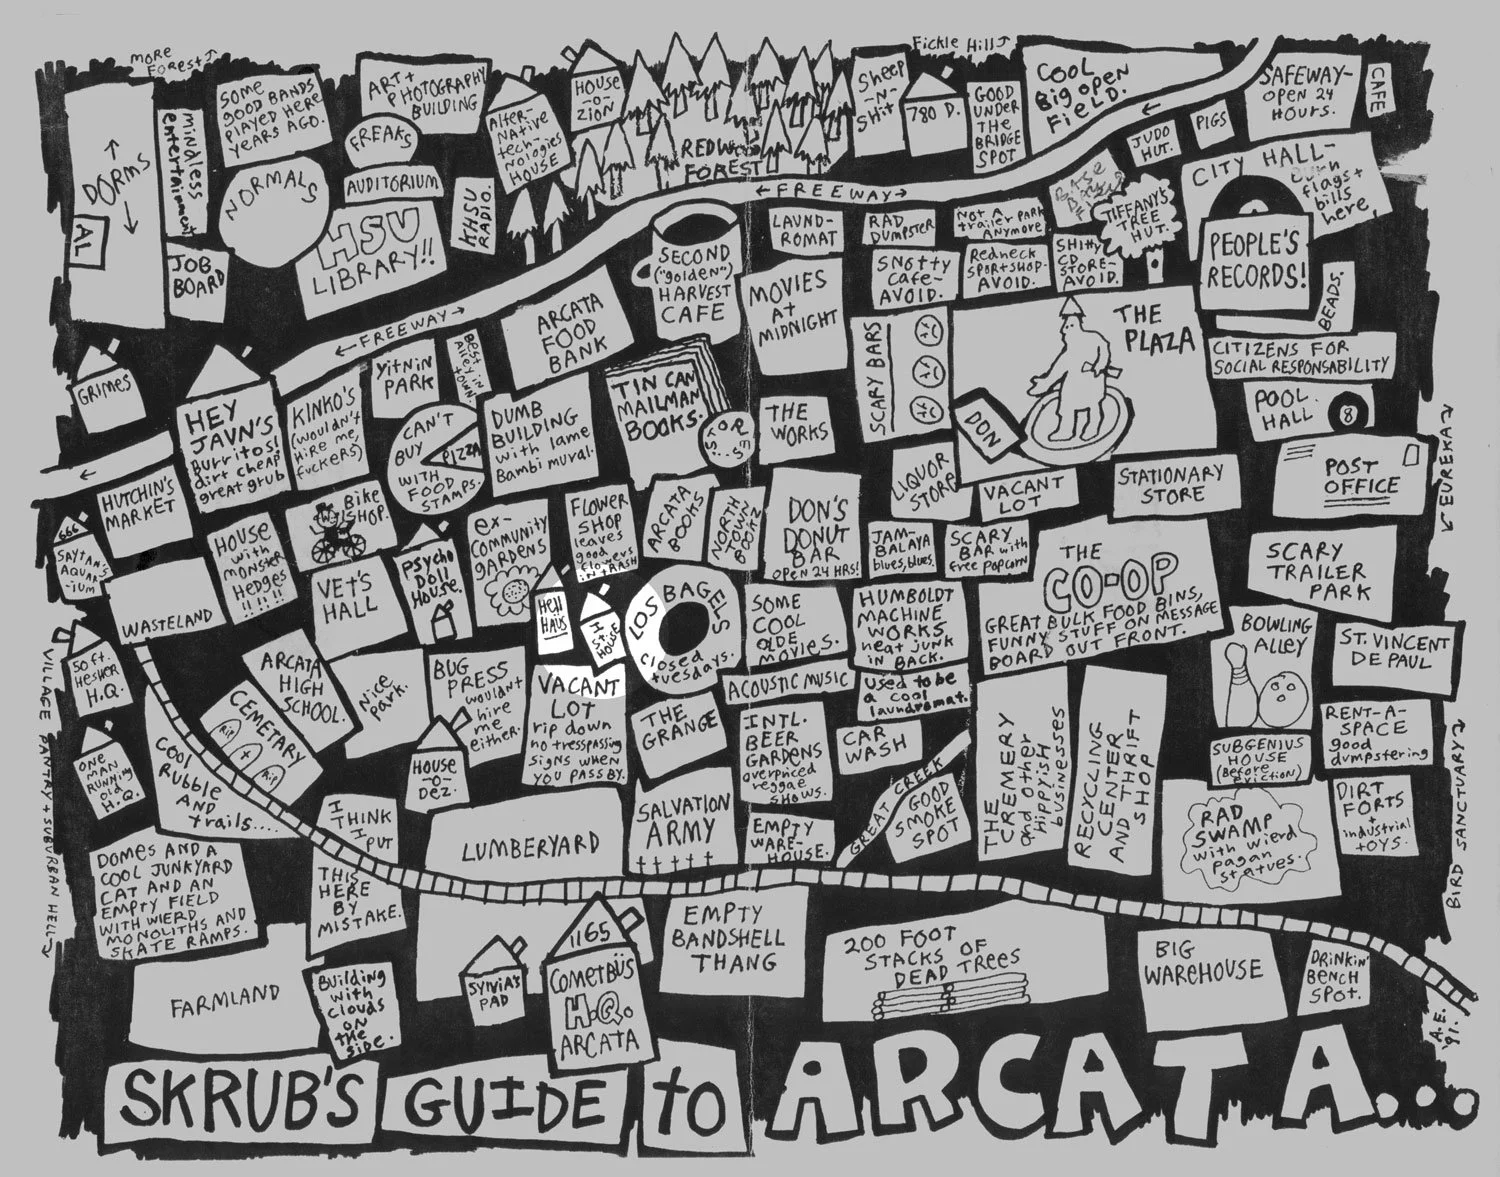 MORE
FOREST↑
Fickle Hill↑
↑
DORMS
↓
AL
mindless
entertainment
SOME
GOOD BANDS
PLAYED HERE
YEARS AGO.
ART +
PHOTOGRAPHY
BUILDING
FREAKS
AUDITORIUM
NORMALS
HSU
LIBRARY!!
KHSU
RADIO.
JOB
BOARD
ALTER-
NATIVE
techn-
NOLOGIES
HOUSE
HOUSE
-O-
ZION
REDWOOD
FOREST
Sheep
-N-
Shit
780 D.
GOOD
UNDER
THE
BRIDGE
SPOT
COOL
Big open
Field.
SAFEWAY-
OPEN 24
HOURS.
CAFE
JUDO
HUT.
PIGS
CITY HALL-
burn
flags +
bills
here
TIFFANY'S
TREE
HUT.
PEOPLE'S
RECORDS!
BEADS.
← FREEWAY →
← FREEWAY →
LAUND-
ROMAT
RAD
DUMPSTER
NOT A
trailer PARK
ANYmore
SNOTTY
Cafe-
AVOID.
Redneck
SPORTSHOP-
AVOID.
SHITTY
CD
STORE-
AVOID.
SECOND
("golden")
HARVEST
CAFE
MOVIES
AT
MIDNIGHT
ARCATA
FOOD
BANK
SCARY BARS
THE
PLAZA
DON
CITIZENS FOR
SOCIAL RESPONSABILITY
POOL
HALL
8
POST
OFFICE
← EUREKA →
GRIMES
HEY
JAVN'S
Burritos!
dirt cheap
great grub
KINKO'S
(wouldn't
Hire me,
fuckers)
YITNIN
PARK
Best
Alley in
town.
CAN'T
BUY
PIZZA
WITH
FOOD
STAMPS.
DUMB
BUILDING
with lame
Bambi mural.
TIN CAN
MAILMAN
BOOKS.
THE
WORKS
LIQUOR
STORE
VACANT
LOT
STATIONARY
STORE
HUTCHIN'S
MARKET
666
SAYTAN'S
AQUAR-
-IUM
HOUSE
with
monster
Hedges
!!!!!!
Bike
SHOP.
PSYCHO
Doll
House.
ex-
COMMUNITY
GARDENS
FLOWER
SHOP
leaves
good
flowers
in trash
ARCATA
BOOKS
NORTH
TOWN
BOOKZ
DON'S
DONUT
BAR
OPEN 24 HRS!
JAM-
BALAYA
blues, blues.
SCARY
BAR with
free popcorn
THE
CO-OP
GREAT BULK FOOD BINS,
FUNNY STUFF ON MESSAGE
BOARD OUT FRONT.
SCARY
TRAILER
PARK
WASTELAND
VET'S
HALL
Hell
HAUS
H ST.
HOUSE
LOS
BAGELS
CLOSED
tuesdays.
SOME
COOL
OLDE
MOVIES.
HUMBOLDT
MACHINE
WORKS
neat junk
IN BACK.
BOWLING
ALLEY
ST. VINCENT
DE PAUL
50 ft.
HESHER
H.Q.
VILLAGE PANTRY + SUBURBAN HELL
CEMETARY
RIP
+
RIP
ARCATA
HIGH
SCHOOL.
Nice
Park.
BUG
PRESS
wouldn't
hire
me
either.
VACANT
LOT
rip down
no tresspassing
signs when
YOU PASS BY.
THE
GRANGE
ACOUSTIC MUSIC
Used to be
a cool
laundromat.
INTL.
BEER
GARDENS
overpriced
reggae
SHOWS.
CAR
WASH
GREAT CREEK
GOOD
SMOKE
SPOT
THE CREMERY
and other
Hippyish
businesses
RECYCLING
CENTER
AND THRIFT
SHOP
SUBGENIUS
HOUSE
(Before
eviction)
RENT-A-
SPACE
good
dumpstering
ONE
MAN
RUNNING
old
H.Q.
COOL
Rubble
AND
trails....
HOUSE
-O-
DEZ.
I
THINK
I
PUT
THIS
HERE
BY
MISTAKE.
LUMBERYARD
SALVATION
ARMY
EMPTY
WARE-
HOUSE.
RAD
SWAMP
with wierd
pagan
statues.
DIRT
FORTS
+
industrial
toys.
BIRD SANCTUARY →
DOMES AND A
COOL JUNKYARD
CAT AND AN
EMPTY FIELD
WITH WIERD
MONOLITHS AND
SKATE RAMPS.
FARMLAND
Building
with
clouds
on
the
side.
SYLVIA'S
PAD
1165
COMETBÜS
H.Q.
ARCATA
EMPTY
BANDSHELL
THANG
200 FOOT
STACKS OF
DEAD TREES
BIG
WAREHOUSE
DRINKIN'
BENCH
SPOT.
A.E.
'91.
SKRUB'S GUIDE to ARCATA...